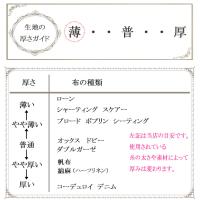 生地の
厚さガイド
薄・・普・・厚
厚さ
布の種類
薄い
ローン
シャーティング スケアー
やや薄い
ブロード ポプリン シーティング
普通
オックス ドビー
ダブルガーゼ
やや厚い
帆布
綿麻(ハーフリネン)
厚い
コーデュロイ デニム
左記は当店の目安です。
使用されている
糸の太さや素材によって
厚みは変わります。